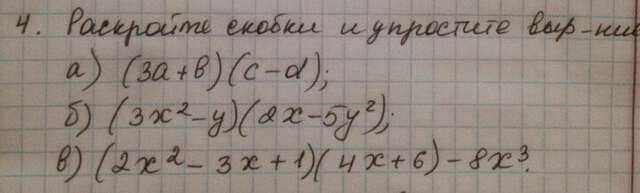 4. Раскройте скобки и упростите выр-ние
а) (3а+в)(с-d);
б) (3x²-y)(2x-5y²);
в) (2x²-3x+1)(4x+6)-8x³.